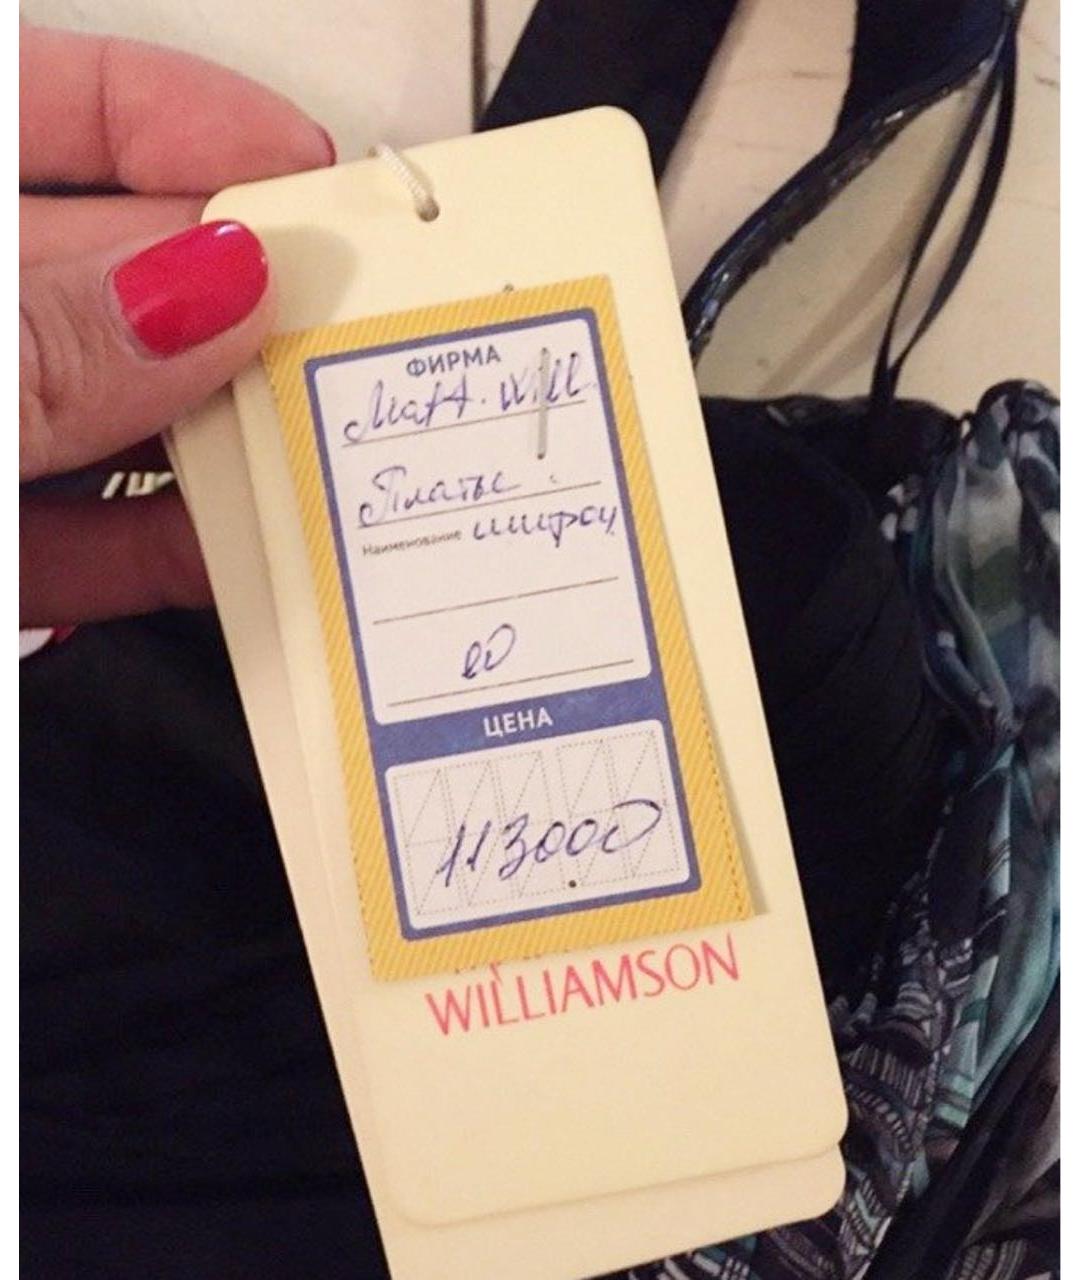 ФИРМА
Matt. Will.
Платье
Наименование шифон
ЦЕНА
113000
WILLIAMSON